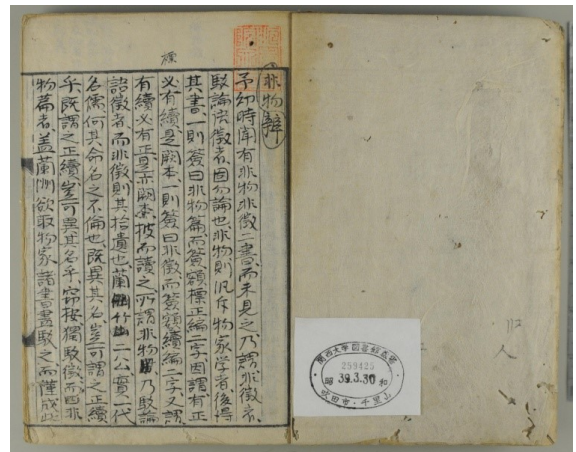 非物辯
予幼時聞有非物非徴二書而未見之乃謂非徴者
駁論語徴者固勿論也非物則汎斥物家学者後得
其書一則簽曰非物篇而簽額標正編二字因謂有正
標
必有續是闕本一則簽曰非徴而簽額續編二字又謂
有續必有正是亦闕本披而讀之所謂非物乃駁論
語徴者而非徴則其拾遺也蘭洲竹山二公實一代
名儒何其命名之不倫也既異其名豈可謂之正續
乎既謂之正續豈可異其名乎窃按獨駁徴而曰非
物篇者盖蘭洲欲取物家諸書盡駁之而僅成此
関西大学図書館蔵書
259425
昭 39.3.30 和
吹田市・千里山